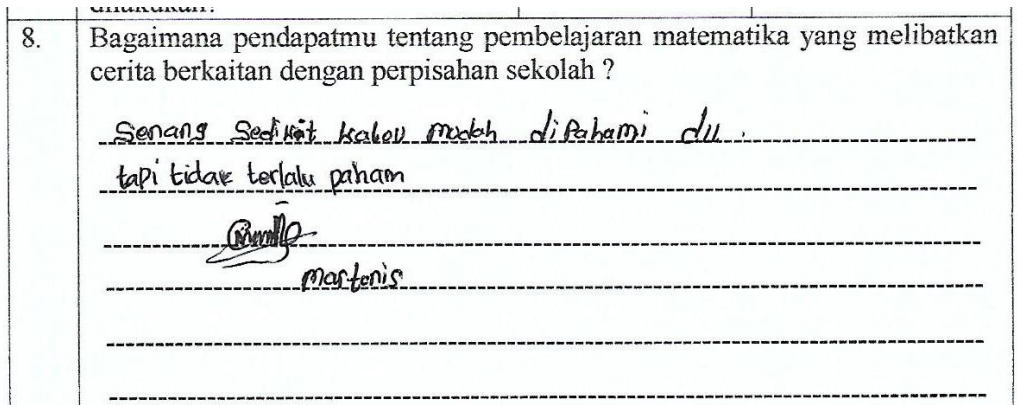 8. Bagaimana pendapatmu tentang pembelajaran matematika yang melibatkan
cerita berkaitan dengan perpisahan sekolah ?
Senang Sedikit kalou mudah difahami
tapi tidak terlalu paham
martonis